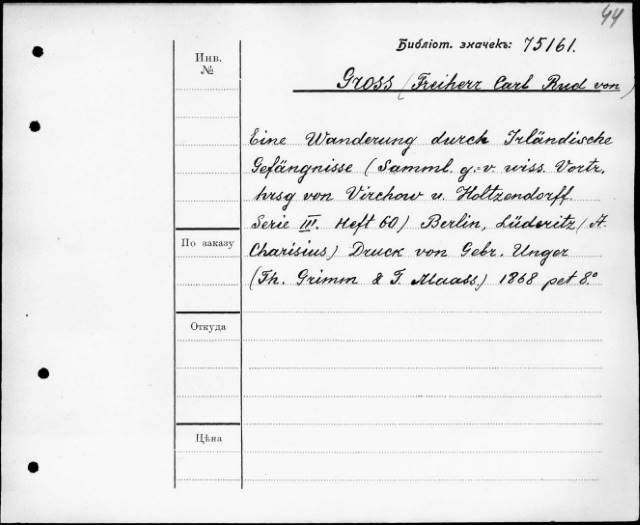 44
Библіот. значекъ: 75161.
Инв.
№
Gross (Freiherr Carl Rud von)
Eine Wanderung durch Irländische
Gefängnisse (Samml. g.-v. wiss. Vortr.
hrsg von Virchow u. Holtzendorff.
Serie III. Heft 60) Berlin, Lüderitz (A.
По заказу
Charisius) Druck von Gebr. Unger
(Th. Grimm & F. Maass.) 1868 pet 8.°
Откуда
Цѣна